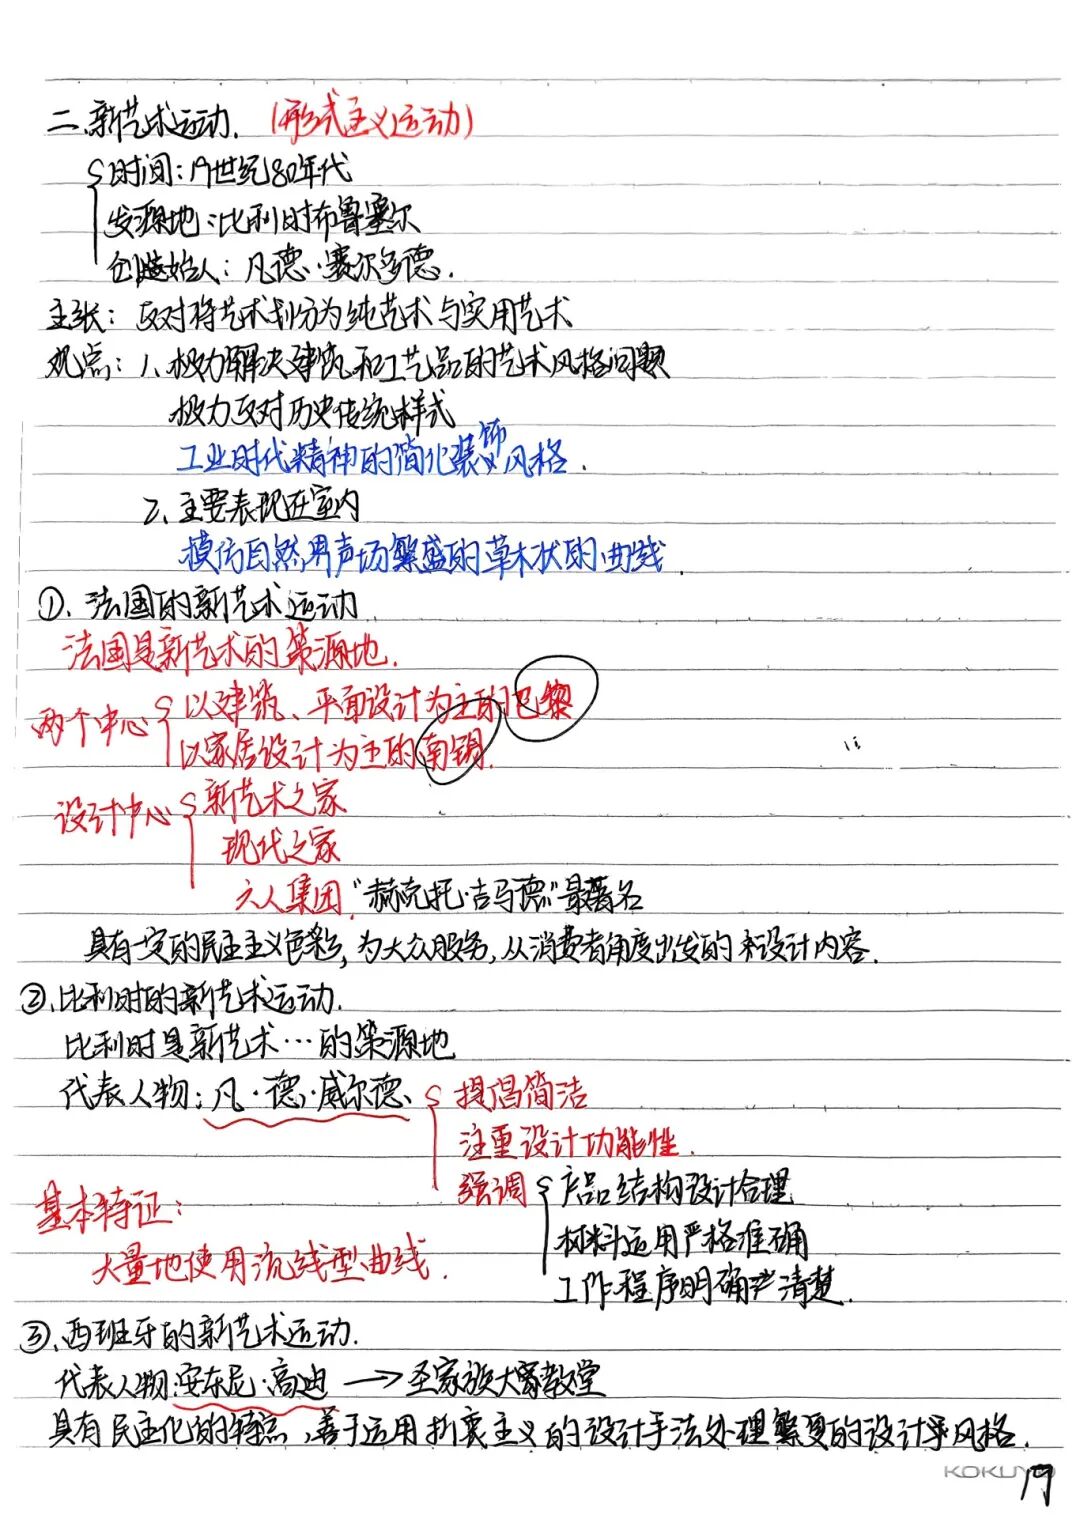 二、新艺术运动.（形式主义运动）
时间：19世纪80年代
发源地：比利时布鲁塞尔
创始人：凡德·赛尔多德.
主张：反对将艺术划分为纯艺术与实用艺术
观点：1、极力解决建筑和工艺品的艺术风格问题
极力反对历史传统样式
工业时代精神的简化装饰风格.
2、主要表现在室内
模仿自然界声场繁盛的草木状的曲线.
①、法国的新艺术运动.
法国是新艺术的策源地.
两个中心 以建筑、平面设计为主的巴黎
以家居设计为主的南锡.
设计中心 新艺术之家
现代之家
六人集团."赫克托·吉马德"最著名
具有一定的民主主义色彩,为大众服务,从消费者角度出发的来设计内容.
②、比利时的新艺术运动.
比利时是新艺术…的策源地
代表人物：凡·德·威尔德、 提倡简洁
注重设计功能性.
强调 产品结构设计合理
基本特证：
材料运用严格准确
大量地使用流线型曲线.
工作程序明确清楚.
③、西班牙的新艺术运动.
代表人物：安东尼·高迪 → 圣家族大教堂
具有民主化的特点,善于运用折衷主义的设计手法处理繁复的设计风格.
KOKUYO
19